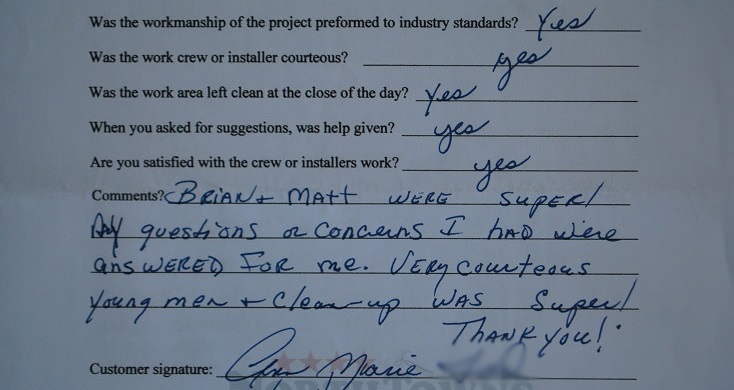 Was the workmanship of the project preformed to industry standards? Yes
Was the work crew or installer courteous? yes
Was the work area left clean at the close of the day? Yes
When you asked for suggestions, was help given? yes
Are you satisfied with the crew or installers work? yes
Comments? BRIAN + MATT WERE SUPER!
Any questions or concerns I HAD were
answERED FOR me. VERY courteous
young men + Clean-up WAS Super!
THANK YOU!
Customer signature: Ann Marie